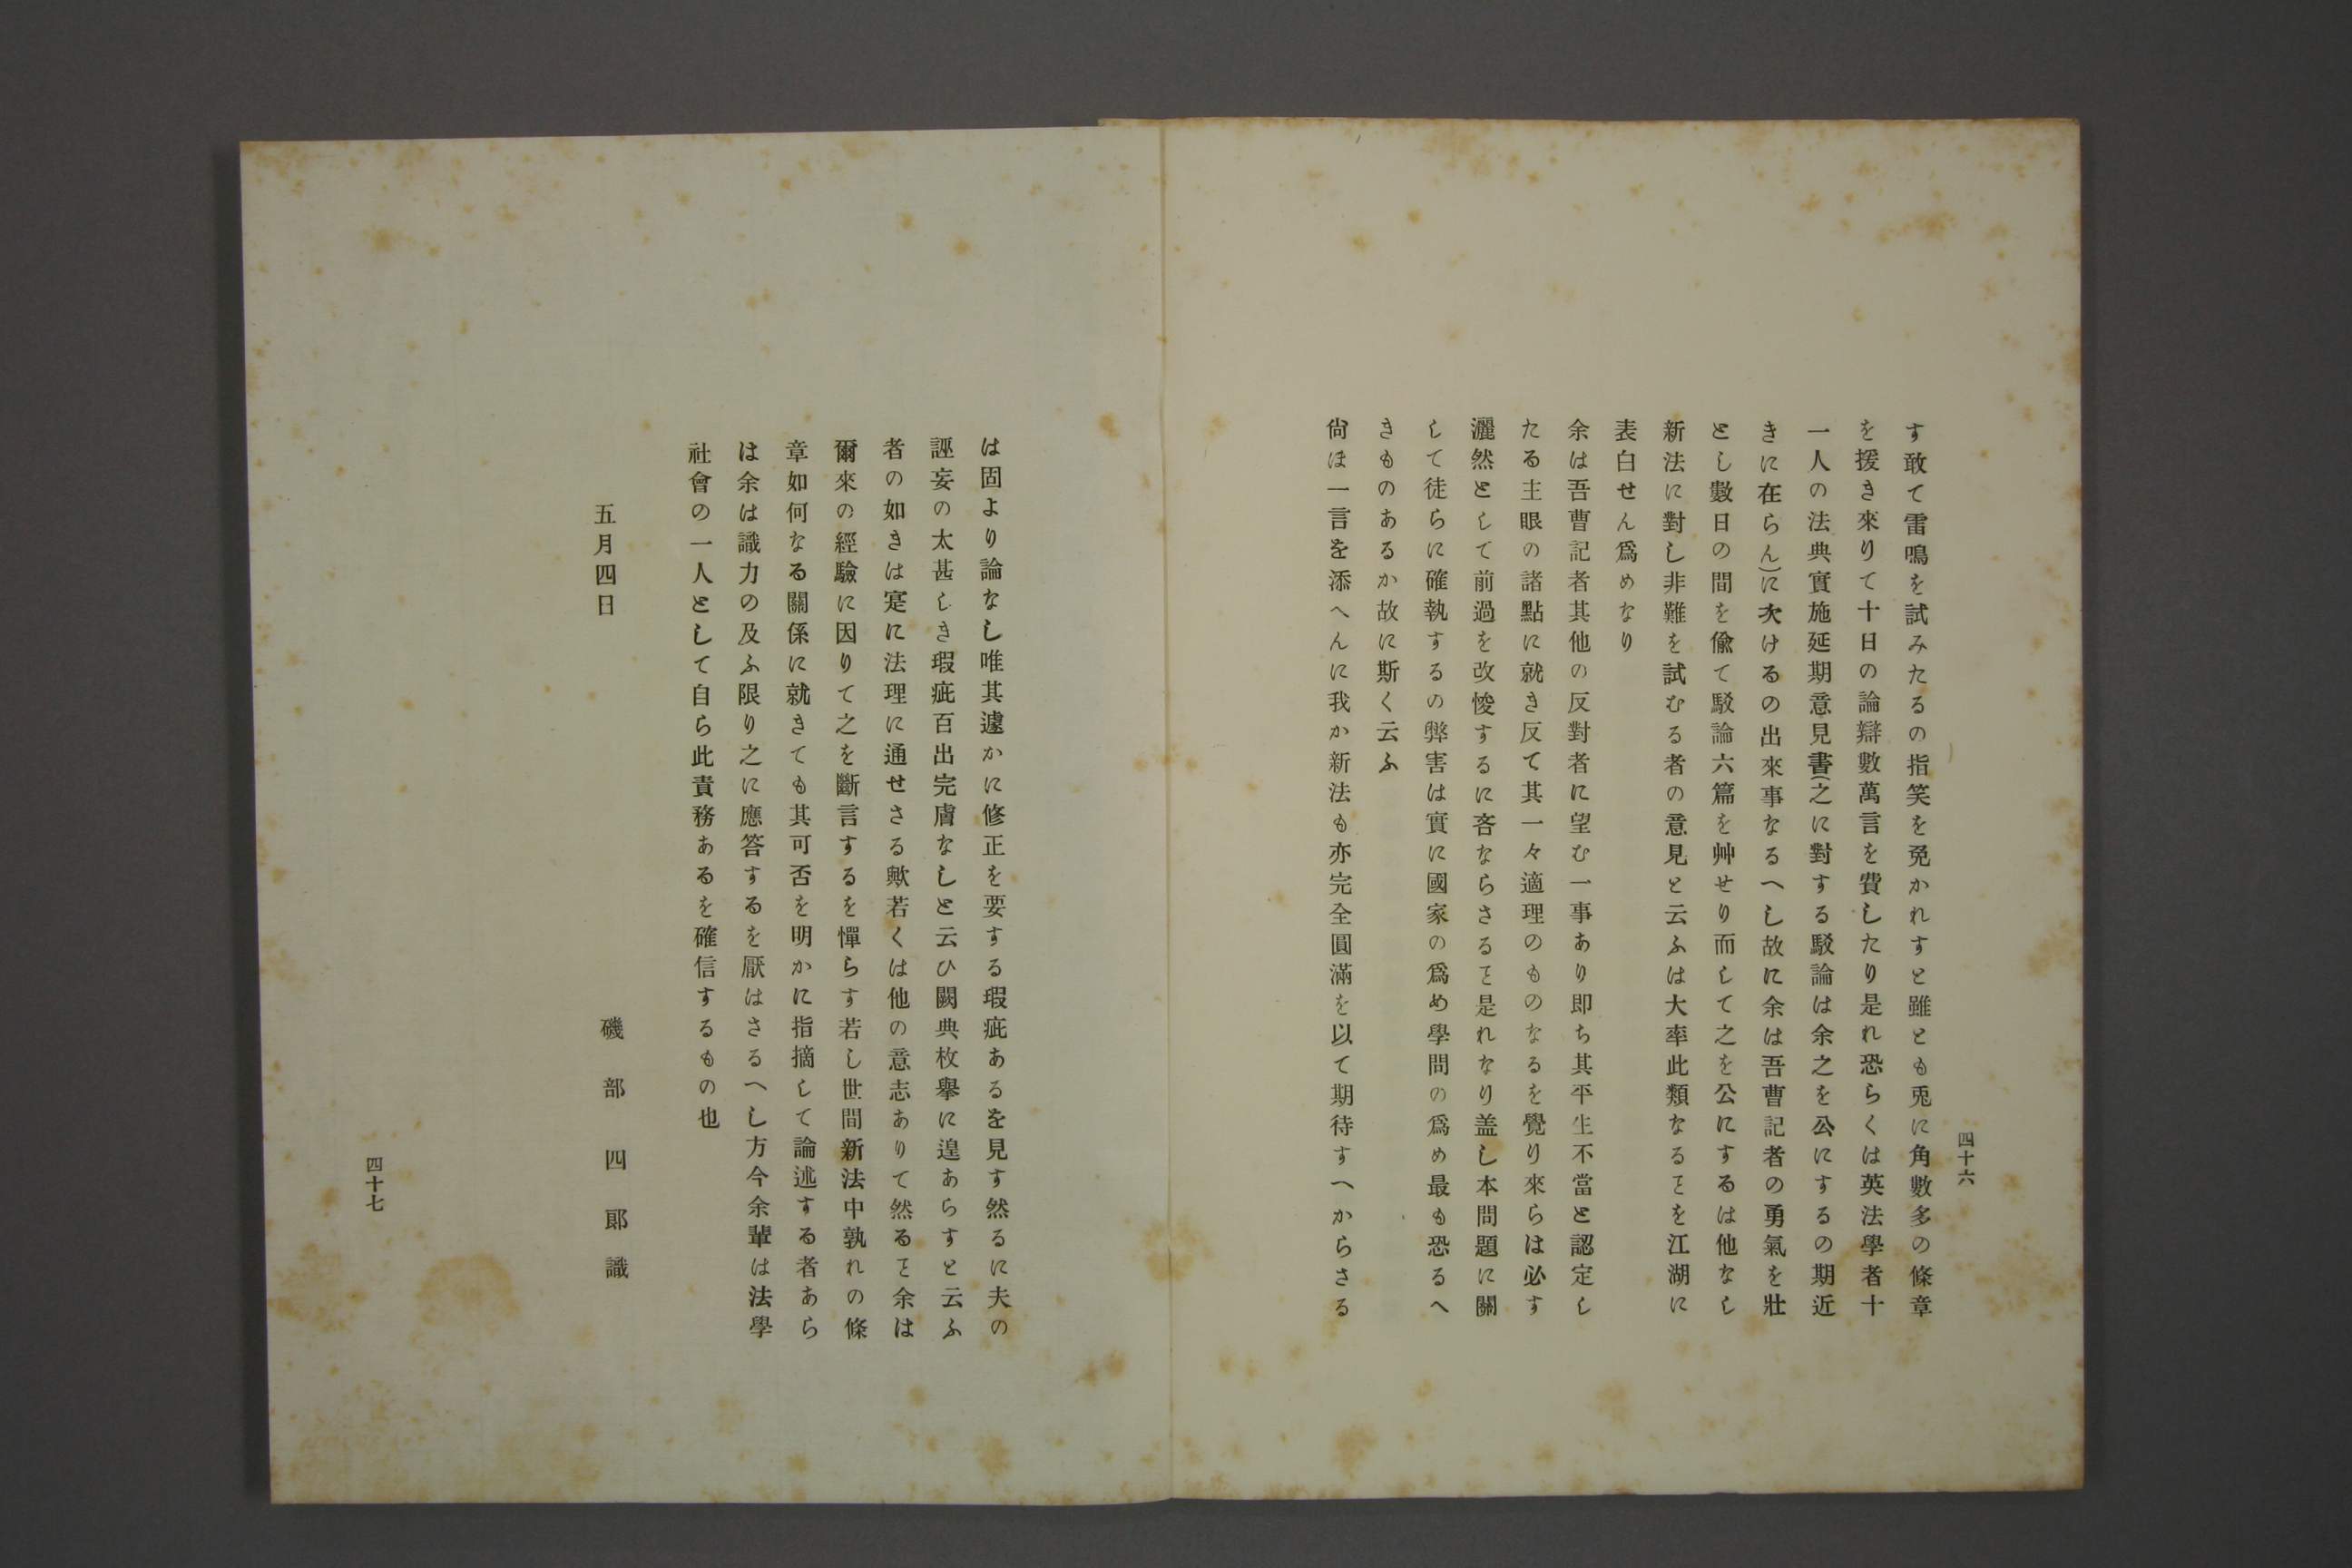 四十六
す敢て雷鳴を試みたるの指笑を免かれすと雖とも兎に角數多の條章
を援き來りて十日の論辯數萬言を費したり是れ恐らくは英法學者十
一人の法典實施延期意見書(之に對する駁論は余之を公にするの期近
きに在らん)に次けるの出來事なるへし故に余は吾曹記者の勇氣を壯
とし數日の間を偸て駁論六篇を艸せり而して之を公にするは他なし
新法に對し非難を試むる者の意見と云ふは大率此類なるヿを江湖に
表白せん爲めなり
余は吾曹記者其他の反對者に望む一事あり即ち其平生不當と認定し
たる主眼の諸點に就き反て其一々適理のものなるを覺り來らは必す
灑然として前過を改悛するに吝ならさるヿ是れなり盖し本問題に關
して徒らに確執するの弊害は實に國家の爲め學問の爲め最も恐るへ
きものあるか故に斯く云ふ
尙ほ一言を添へんに我か新法も亦完全圓滿を以て期待すへからさる
は固より論なし唯其遽かに修正を要する瑕疵あるを見す然るに夫の
誣妄の太甚しき瑕疵百出完膚なしと云ひ闕典枚擧に遑あらすと云ふ
者の如きは寔に法理に通せさる歟若くは他の意志ありて然るヿ余は
爾來の經驗に因りて之を斷言するを憚らす若し世間新法中孰れの條
章如何なる關係に就きても其可否を明かに指摘して論述する者あら
は余は識力の及ふ限り之に應答するを厭はさるへし方今余輩は法學
社會の一人として自ら此責務あるを確信するもの也
五月四日
磯部四郎識
四十七